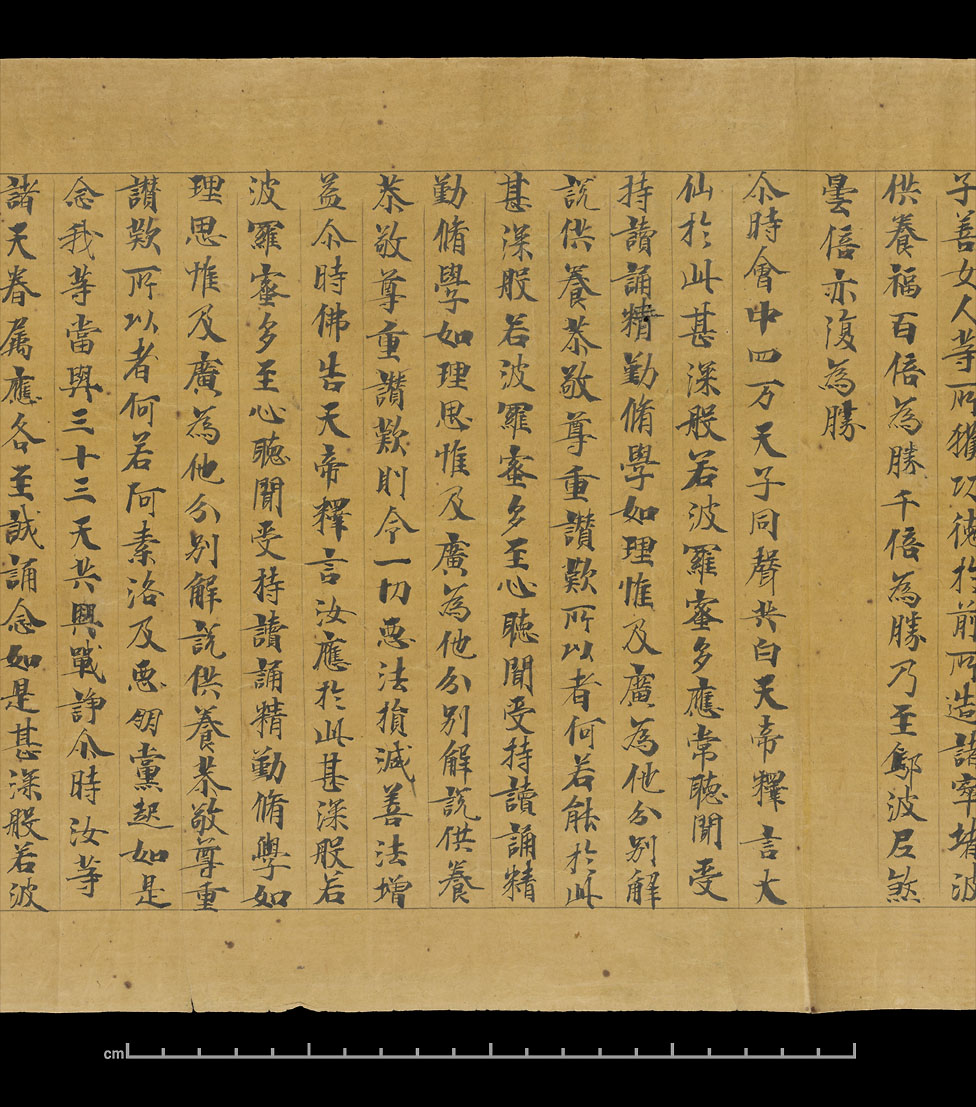 子善女人等所獲功德於前所造諸窣堵波
供養福百倍為勝千倍為勝乃至鄔波尼煞
曇倍亦復為勝
尒時會中四万天子同聲共白天帝釋言大
仙於此甚深般若波羅蜜多應常聽聞受
持讀誦精勤脩學如理惟及廣為他分別解
說供養恭敬尊重讚歎所以者何若能於此
甚深般若波羅蜜多至心聽聞受持讀誦精
勤脩學如理思惟及廣為他分別解說供養
恭敬尊重讚歎則令一切惡法損減善法增
益尒時佛告天帝釋言汝應於此甚深般若
波羅蜜多至心聽聞受持讀誦精勤脩學如
理思惟及廣為他分別解說供養恭敬尊重
讚歎所以者何若阿素洛及惡朋黨起如是
念我等當與三十三天共興戰諍尒時汝等
諸天眷属應各至誠誦念如是甚深般若波
cm